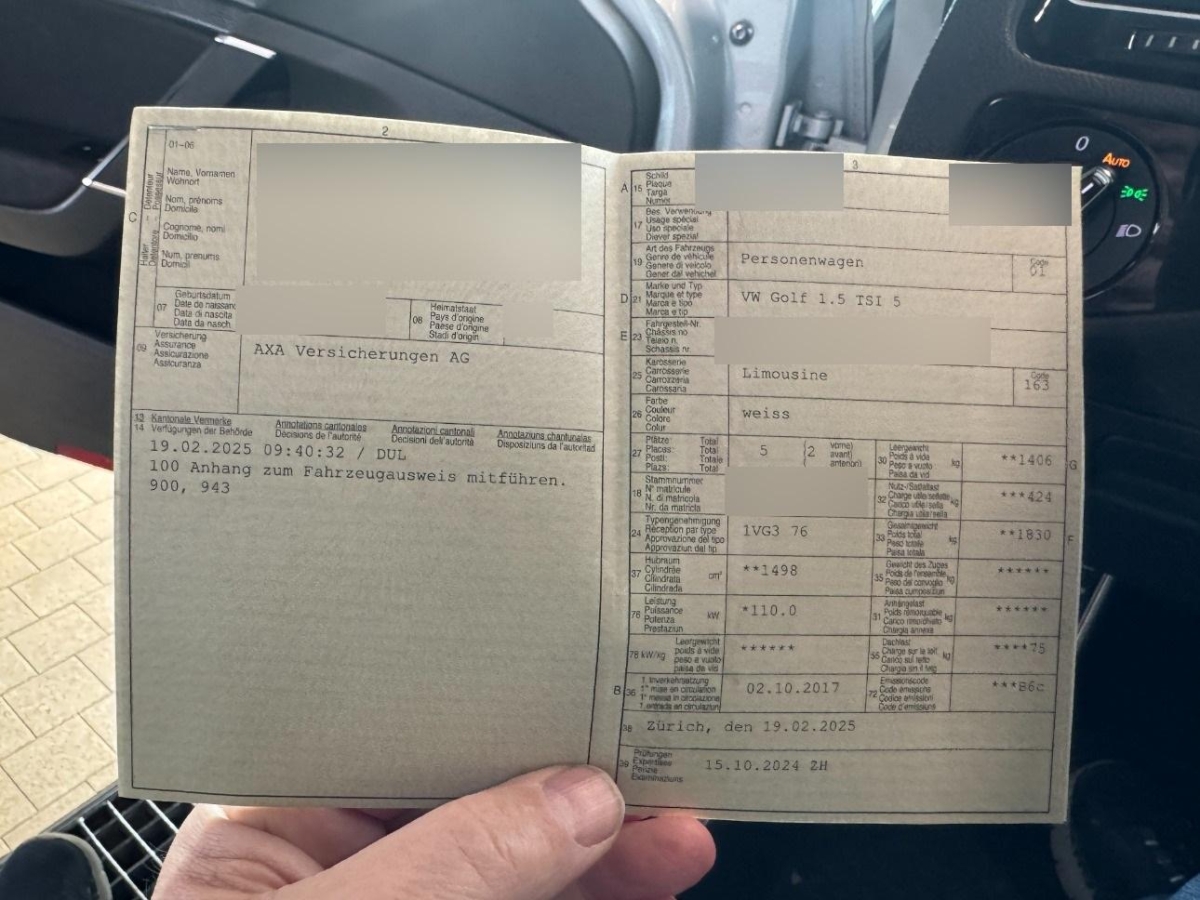 2
01-06
Name, Vornamen
Wohnort
Nom, prénoms
Domicile
Cognome, nomi
Domicilio
Num, prenums
Domicil
C
Halter – Détenteur
Detentore – Possessur
07
Geburtsdatum
Date de naissanc
Data di nascita
Data da nasch
08
Heimatstaat
Pays d'origine
Paese d'origine
Stadi d'origin
09
Versicherung
Assurance
Assicurazione
Assicuranza
AXA Versicherungen AG
13
14
Kantonale Vermerke
Verfügungen der Behörde
Annotations cantonales
Décisions de l'autorité
Annotazioni cantonali
Decisioni dell'autorità
Annotaziuns chantunalas
Disposiziuns da l'autoritad
19.02.2025 09:40:32 / DUL
100 Anhang zum Fahrzeugausweis mitführen.
900, 943
3
A 15
Schild
Plaque
Targa
Numer
17
Bes. Verwendung
Usage spécial
Uso speciale
Diever spezial
19
Art des Fahrzeugs
Genre de véhicule
Genere di veicolo
Gener dal vehichel
Personenwagen
Code
01
D 21
Marke und Typ
Marque et type
Marca e tipo
Marca e tip
VW Golf 1.5 TSI 5
E 23
Fahrgestell-Nr.
Châssis no
Telaio n.
Schassis nr.
25
Karosserie
Carrosserie
Carrozzeria
Carossaria
Limousine
Code
163
26
Farbe
Couleur
Colore
Colur
weiss
27
Plätze Total
Places: Total
Posti: Totale
Plazs: Total
5
(2
vorne)
avant)
anteriori)
30
Leergewicht
Poids à vide
Peso a vuoto
Paisa da vid
kg
**1406
G
18
Stammnummer
N° matricule
N. di matricola
Nr. da matricla
32
Nutz-/Sattellast
Charge utile/sellette
Carico utile/sella
Chargia utila/sella
kg
***424
24
Typengenehmigung
Réception par type
Approvazione del tipo
Approvaziun dal tip
1VG3 76
33
Gesamtgewicht
Poids total
Peso totale
Paisa totala
kg
**1830
F
37
Hubraum
Cylindrée
Cilindrata
Cilindrada
cm³
**1498
35
Gewicht des Zuges
Poids de l'ensemble
Peso del convoglio
Paisa cumposiziun
kg
******
76
Leistung
Puissance
Potenza
Prestaziun
kW
*110.0
31
Anhängelast
Poids remorquable
Carico rimorchiato
Chargia annexa
kg
******
78 kW/kg
Leergewicht
poids à vide
peso a vuoto
paisa da vid
******
55
Dachlast
Charge sur le toit
Carico sul tetto
Chargia sin il tetg
kg
****75
B 36
1. Inverkehrsetzung
1re mise en circulation
1a messa in circolazione
1. entrada en circulaziun
02.10.2017
72
Emissionscode
Code émissions
Codice emissioni
Code d'emissiuns
***B6c
38
Zürich, den 19.02.2025
39
Prüfungen
Expertises
Perizie
Examinaziuns
15.10.2024 ZH
0
AUTO